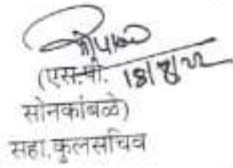 (एस.पी. 18/8/22
सोनकांबळे)
सहा.कुलसचिव